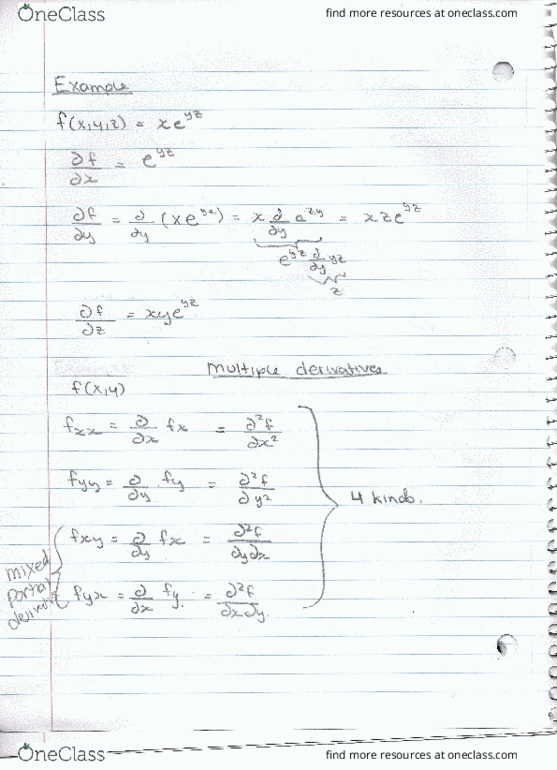 OneClass
find more resources at oneclass.com
Example
f(x,y,z) = xe^yz
∂f/∂x = e^yz
∂f/∂y = ∂/∂y (xe^yz) = x ∂/∂y e^zy = xze^yz
e^yz ∂/∂y yz
z
∂f/∂z = xye^yz
multiple derivatives
f(x,y)
fxx = ∂/∂x fx = ∂²f/∂x²
fyy = ∂/∂y fy = ∂²f/∂y²
4 kinds.
fxy = ∂/∂y fx = ∂²f/∂y∂x
mixed
partial
fyx = ∂/∂x fy = ∂²f/∂x∂y
OneClass
find more resources at oneclass.com